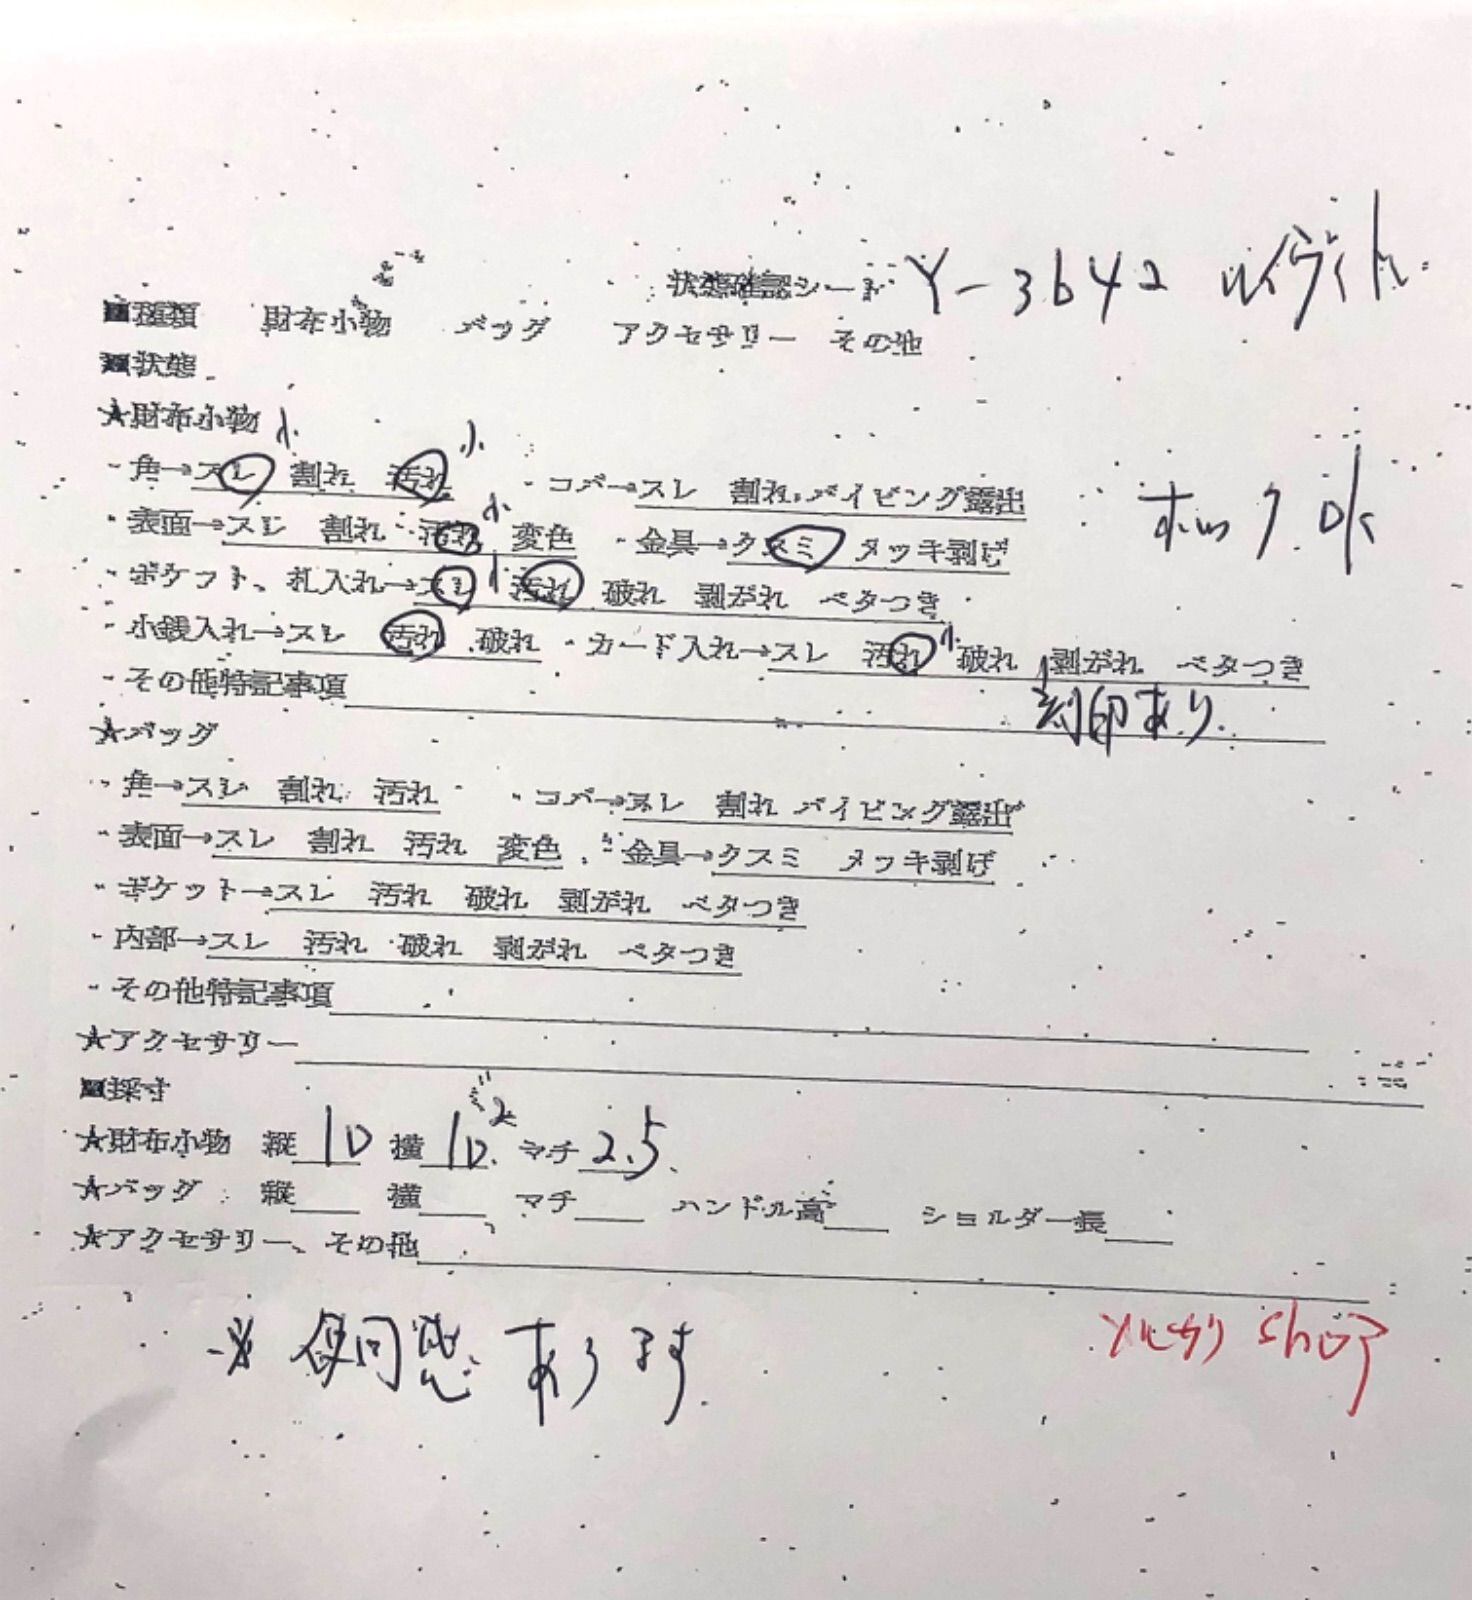 状態確認シート Y-3642 ルイヴィトン
■種類 財布小物 バッグ アクセサリー その他
■状態
★財布小物
・角→スレ 小 割れ 汚れ 小 ・コバ→スレ 割れ パイピング露出
・表面→スレ 割れ 汚れ 小 変色 ・金具→クスミ メッキ剥げ
ホック OK
・ポケット、札入れ→スレ 小 汚れ 破れ 剥がれ ベタつき
・小銭入れ→スレ 汚れ 破れ ・カード入れ→スレ 汚れ 小 破れ 剥がれ ベタつき
・その他特記事項 刻印あり
★バッグ
・角→スレ 割れ 汚れ ・コバ→スレ 割れ パイピング露出
・表面→スレ 割れ 汚れ 変色 ・金具→クスミ メッキ剥げ
・ポケット→スレ 汚れ 破れ 剥がれ ベタつき
・内部→スレ 汚れ 破れ 剥がれ ベタつき
・その他特記事項
★アクセサリー
■採寸
★財布小物 縦 10 横 10. マチ 2.5
★バッグ 縦 横 マチ ハンドル高 ショルダー長
★アクセサリー、その他
※使用感あります
shop